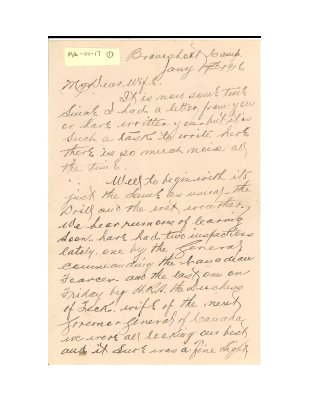 Bramshott Camp
Jany 17th 1916
My Dear Wife.
It is now some time
since I had a letter from you
or have written you but it is
such a task to write here
there is so much noise all
the time.
Well to begin with its
just the same as usual, the
Drill and the wet weather,
We hear rumors of leaving
soon have had two inspections
lately. one by the General
commanding the Canadian
Forces and the last one on
Friday by H.R.H. the Duchess
of Teck, wife of the next
Governor General of Canada
we were all looking our best
and it sure was a fine sight